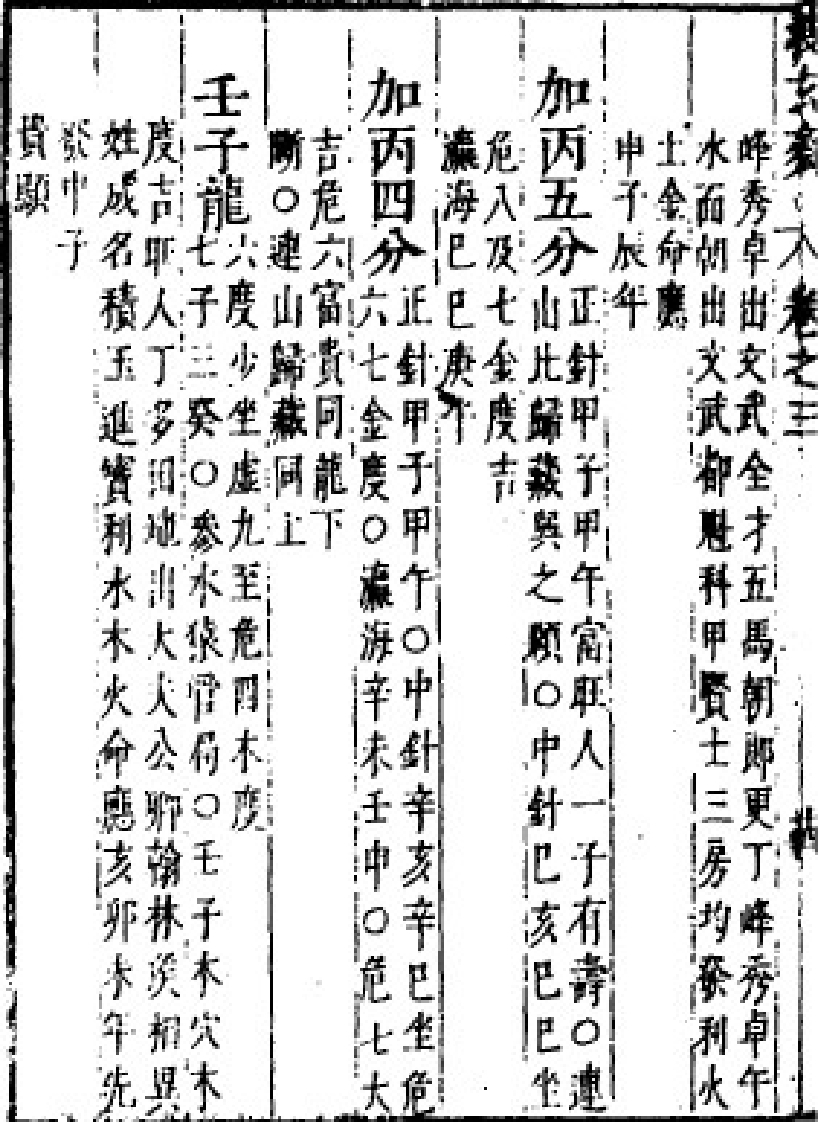 卷之三
峰秀卓出文武全才五馬朝郎更丁峰秀卓午
水面朝出文武都魁科甲賢士三房均發利火
土金命應
申子辰年
加丙五分正針甲子甲午富旺人一子有壽○連
山比歸藏巽之頤○中針巳亥巳巳坐
危八及七金度吉
瀛海巳巳庚午
加丙四分正針甲子甲午○中針辛亥辛巳坐危
六七金度○瀛海辛未壬申○危七大
吉危六富貴同龍下
斷○連山歸藏同上
壬子龍六度少坐虛九至危四木度
七子三癸○參水猿管局○壬子木穴木
度吉旺人丁多田地出大夫公卿翰林
姓成名積玉進寶利水木火命應亥卯未年先
發申子
貴顯